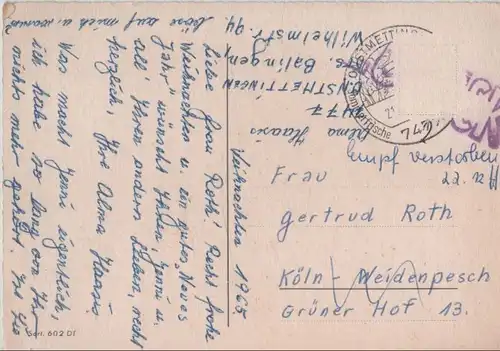 Weihnachten 1965
Liebe Frau Roth! Recht frohe
Weihnachten u. ein gutes "Neues
Jahr" wünscht Ihnen Jenni u.
all' Ihren andern Lieben, recht
herzlich, Ihre Alma Haasis
Was macht Jenni eigentlich,
ich habe so lang von Ihr
nichts mehr gehört, ist Sie
böse auf mich u. warum?
Alma Haasis
7477
ONSTMETTINGEN
Krs. Balingen,
Wilhelmstr. 94
ONSTMETTINGEN
Sommerfrische
Empf verstorben
Frau
Gertrud Roth
Köln - Weidenpesch
Grüner Hof 13.
Seri. 602 DT